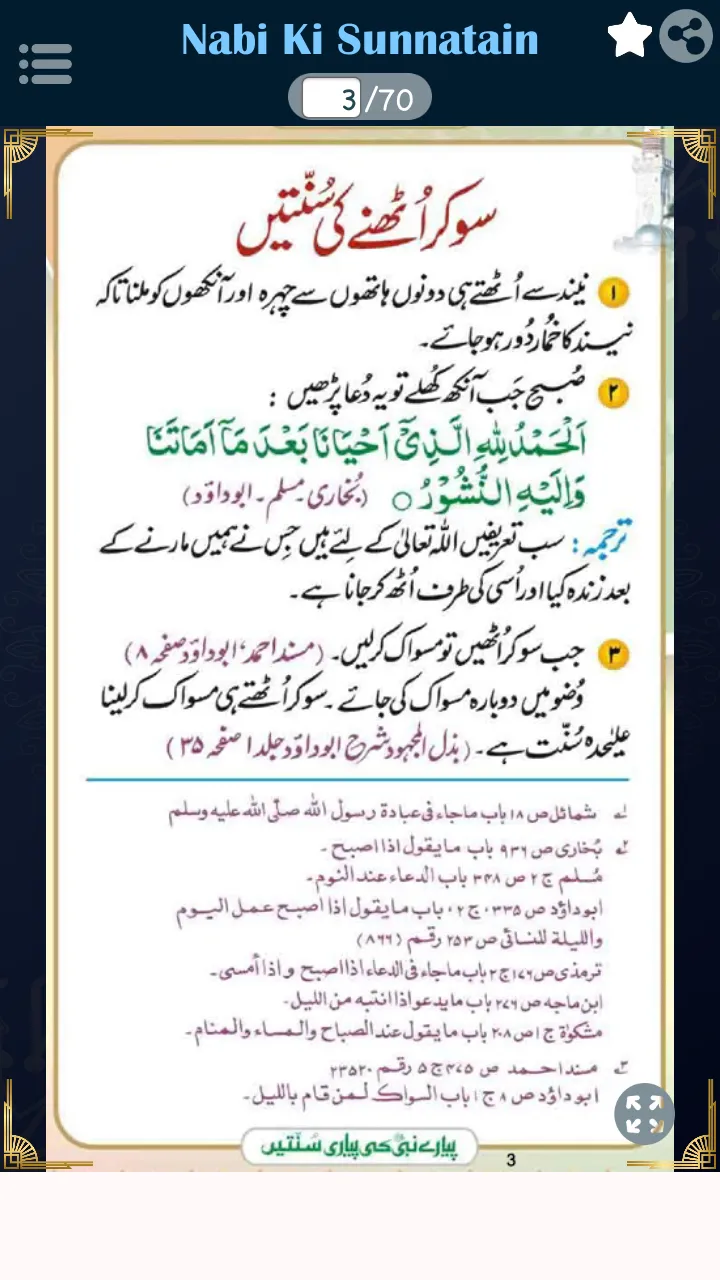 Nabi Ki Sunnatain
3/70
سو کر اُٹھنے کی سُنّتیں
۱ نیند سے اُٹھتے ہی دونوں ہاتھوں سے چہرہ اور آنکھوں کو ملنا تاکہ
نیند کا خُمار دُور ہو جائے۔
۲ صُبح جَب آنکھ کُھلے تو یہ دُعا پڑھیں :
اَلْحَمْدُ لِلّٰهِ الَّذِىْٓ اَحْيَانَا بَعْدَ مَآ اَمَاتَنَا
وَاِلَيْهِ النُّشُوْرُ ○ (بُخاری۔ مسلم۔ ابوداؤد)
ترجمہ : سب تعریفیں اللہ تعالیٰ کے لِئے ہیں جِس نے ہمیں مارنے کے
بعد زندہ کیا اور اُسی کی طرف اُٹھ کر جانا ہے۔
۳ جب سو کر اُٹھیں تو مسواک کر لیں۔ (مسند احمد، ابوداؤد صفحہ ۸)
وُضو میں دوبارہ مسواک کی جائے ۔ سو کر اُٹھتے ہی مسواک کر لینا
علیٰحدہ سُنّت ہے۔ (بذل المجہود شرح ابوداؤد جلد ۱ صفحہ ۳۵)
۱ شمائل ص ۱۸ باب ماجاء فی عبادة رسول الله صلّی الله علیه وسلم
۲ بُخاری ص ۹۳۶ باب مایقول اذا اصبح۔
مُسلم ج ۲ ص ۳۴۸ باب الدعاء عند النوم۔
ابوداؤد ص ۳۳۵، ج ۲، باب مایقول اذا اصبح عمل الیوم
واللیلة للنسائی ص ۲۵۳ رقم (۸۶۶)
ترمذی ص ۱۷۶ ج ۲ باب ماجاء فی الدعاء اذا اصبح و اذا أمسی۔
ابن ماجه ص ۲۷۶ باب مایدعو اذا انتبه من اللیل۔
مشکوٰة ج ۱ ص ۲۰۸ باب مایقول عند الصباح والمساء والمنام۔
۳ مسند احمد ص ۴۷۵ ج ۵ رقم ۲۳۵۲۰
ابوداؤد ص ۸ ج ۱ باب السواک لمن قام باللیل۔
پیارے نبیؐ کی پیاری سُنّتیں
3